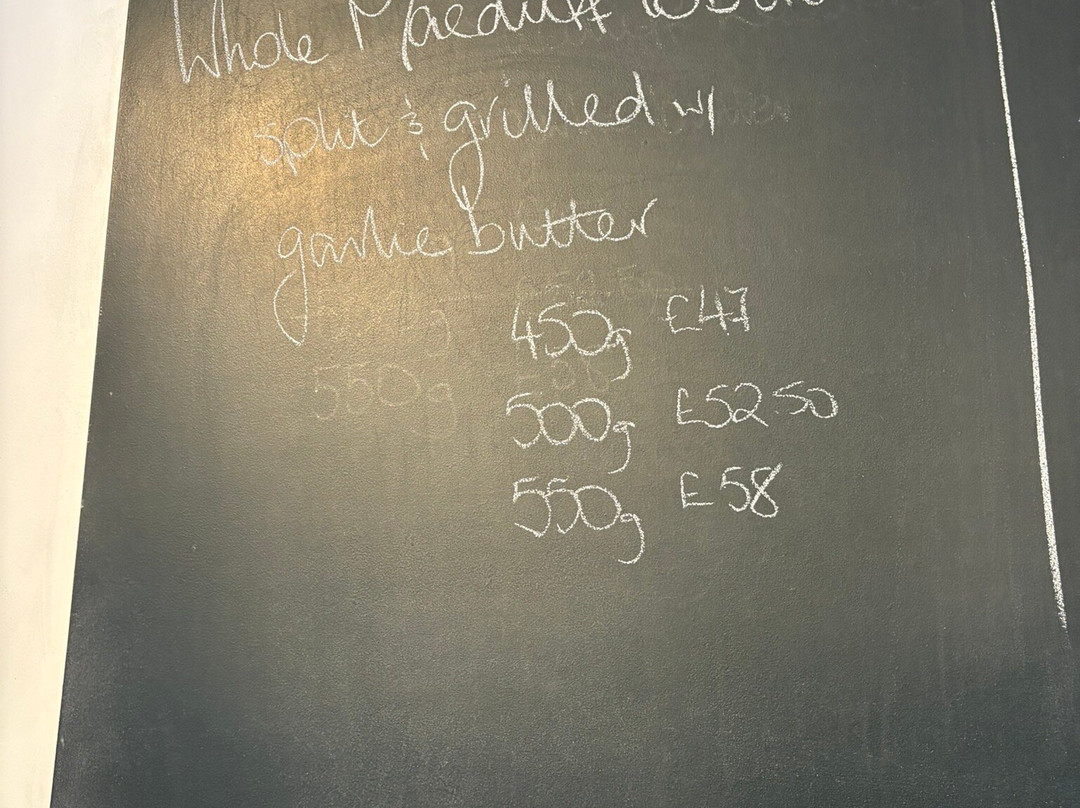 Whole Macduff
split & grilled w/
garlic butter
450g £47
500g £52.50
550g £58